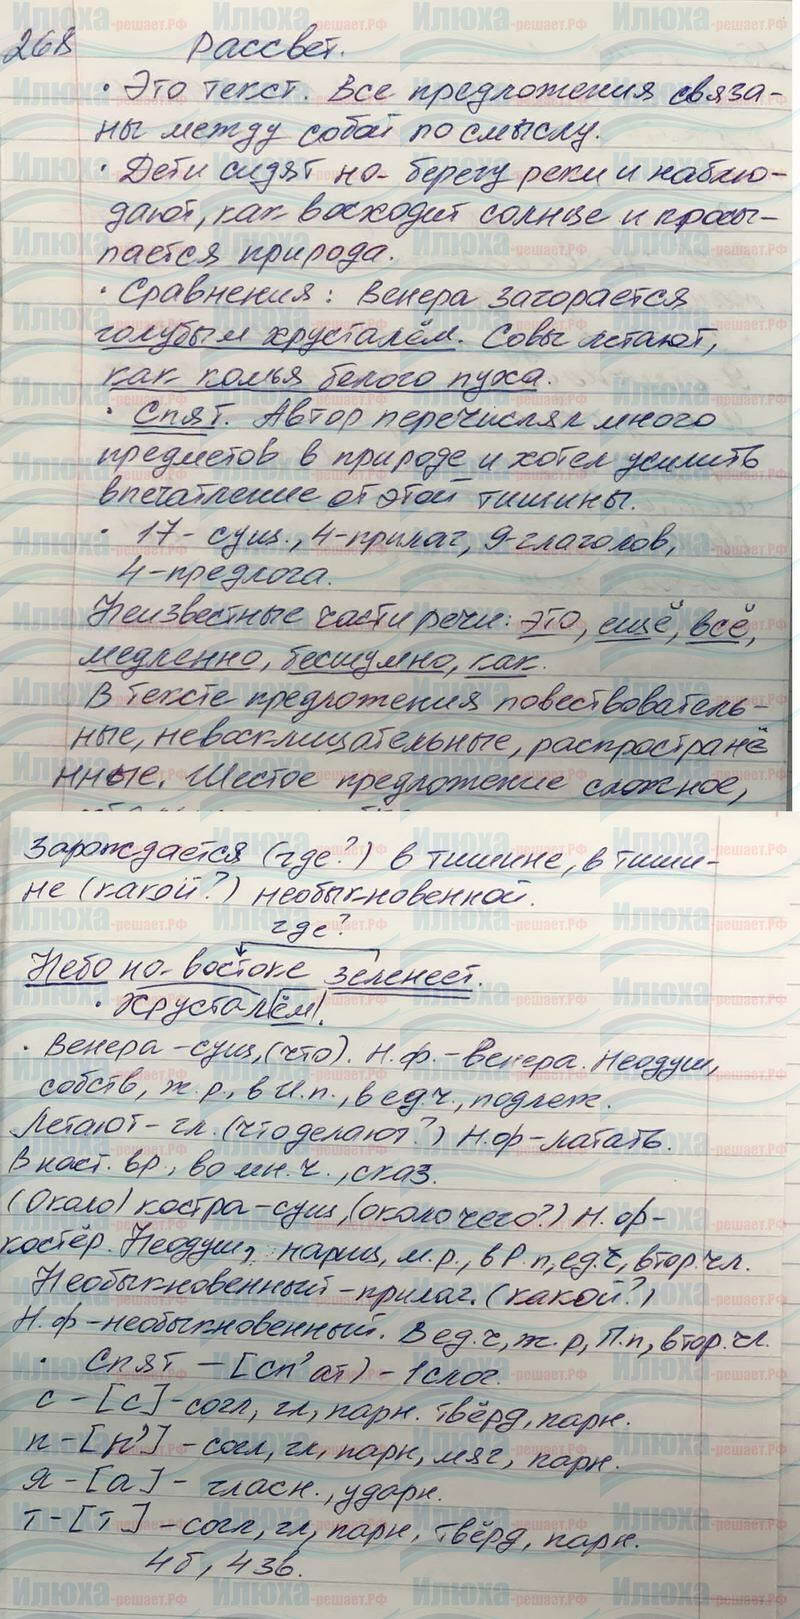 268 Рассвет.
· Это текст. Все предложения связа-
ны между собой по смыслу.
· Дети сидят на берегу реки и наблю-
дают, как восходит солнце и просы-
пается природа.
· Сравнения: Венера загорается
голубым хрусталём. Совы летают,
как комья белого пуха.
· Спят. Автор перечислял много
предметов в природе и хотел усилить
впечатление от этой тишины.
· 17- сущ., 4-прилаг, 9-глаголов,
4-предлога.
Неизвестные части речи: это, ещё, всё,
медленно, бесшумно, как.
В тексте предложения повествователь-
ные, невосклицательные, распространё
нные. Шестое предложение сложное,
Зарождается (где?) в тишине, в тиши-
не (какой?) необыкновенной.
где?
Небо на востоке зеленеет.
· Хрусталём.
· Венера -сущ, (что). Н.ф.- Венера. Неодуш,
собств, ж.р., в И.п., в ед.ч., подлеж.
Летают- гл. (что делают?) Н.ф-латать.
В наст. вр., во мн.ч., сказ.
(Около) костра-сущ, (около чего?) Н.ф-
костёр. Неодуш, нариц, м.р., в Р.п, ед.ч, втор.чл.
Необыкновенный-прилаг. (какой?)
Н.ф-необыкновенный. В ед.ч, ж.р, П.п, втор.чл.
· Спят – [сп'ат) - 1 слог.
с – [с]-согл, гл, парн. твёрд, парн.
п - [п'] - согл, гл, парн, мяг, парн.
я - [а] - гласн., ударн.
т - [т] - согл, гл, парн, твёрд, парн.
4б, 4зв.
Илюха-решает.РФ